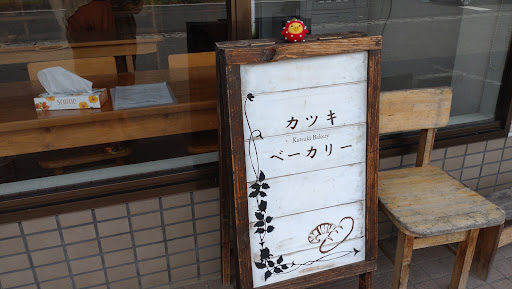 カツキ
Katsuki Bakery
ベーカリー